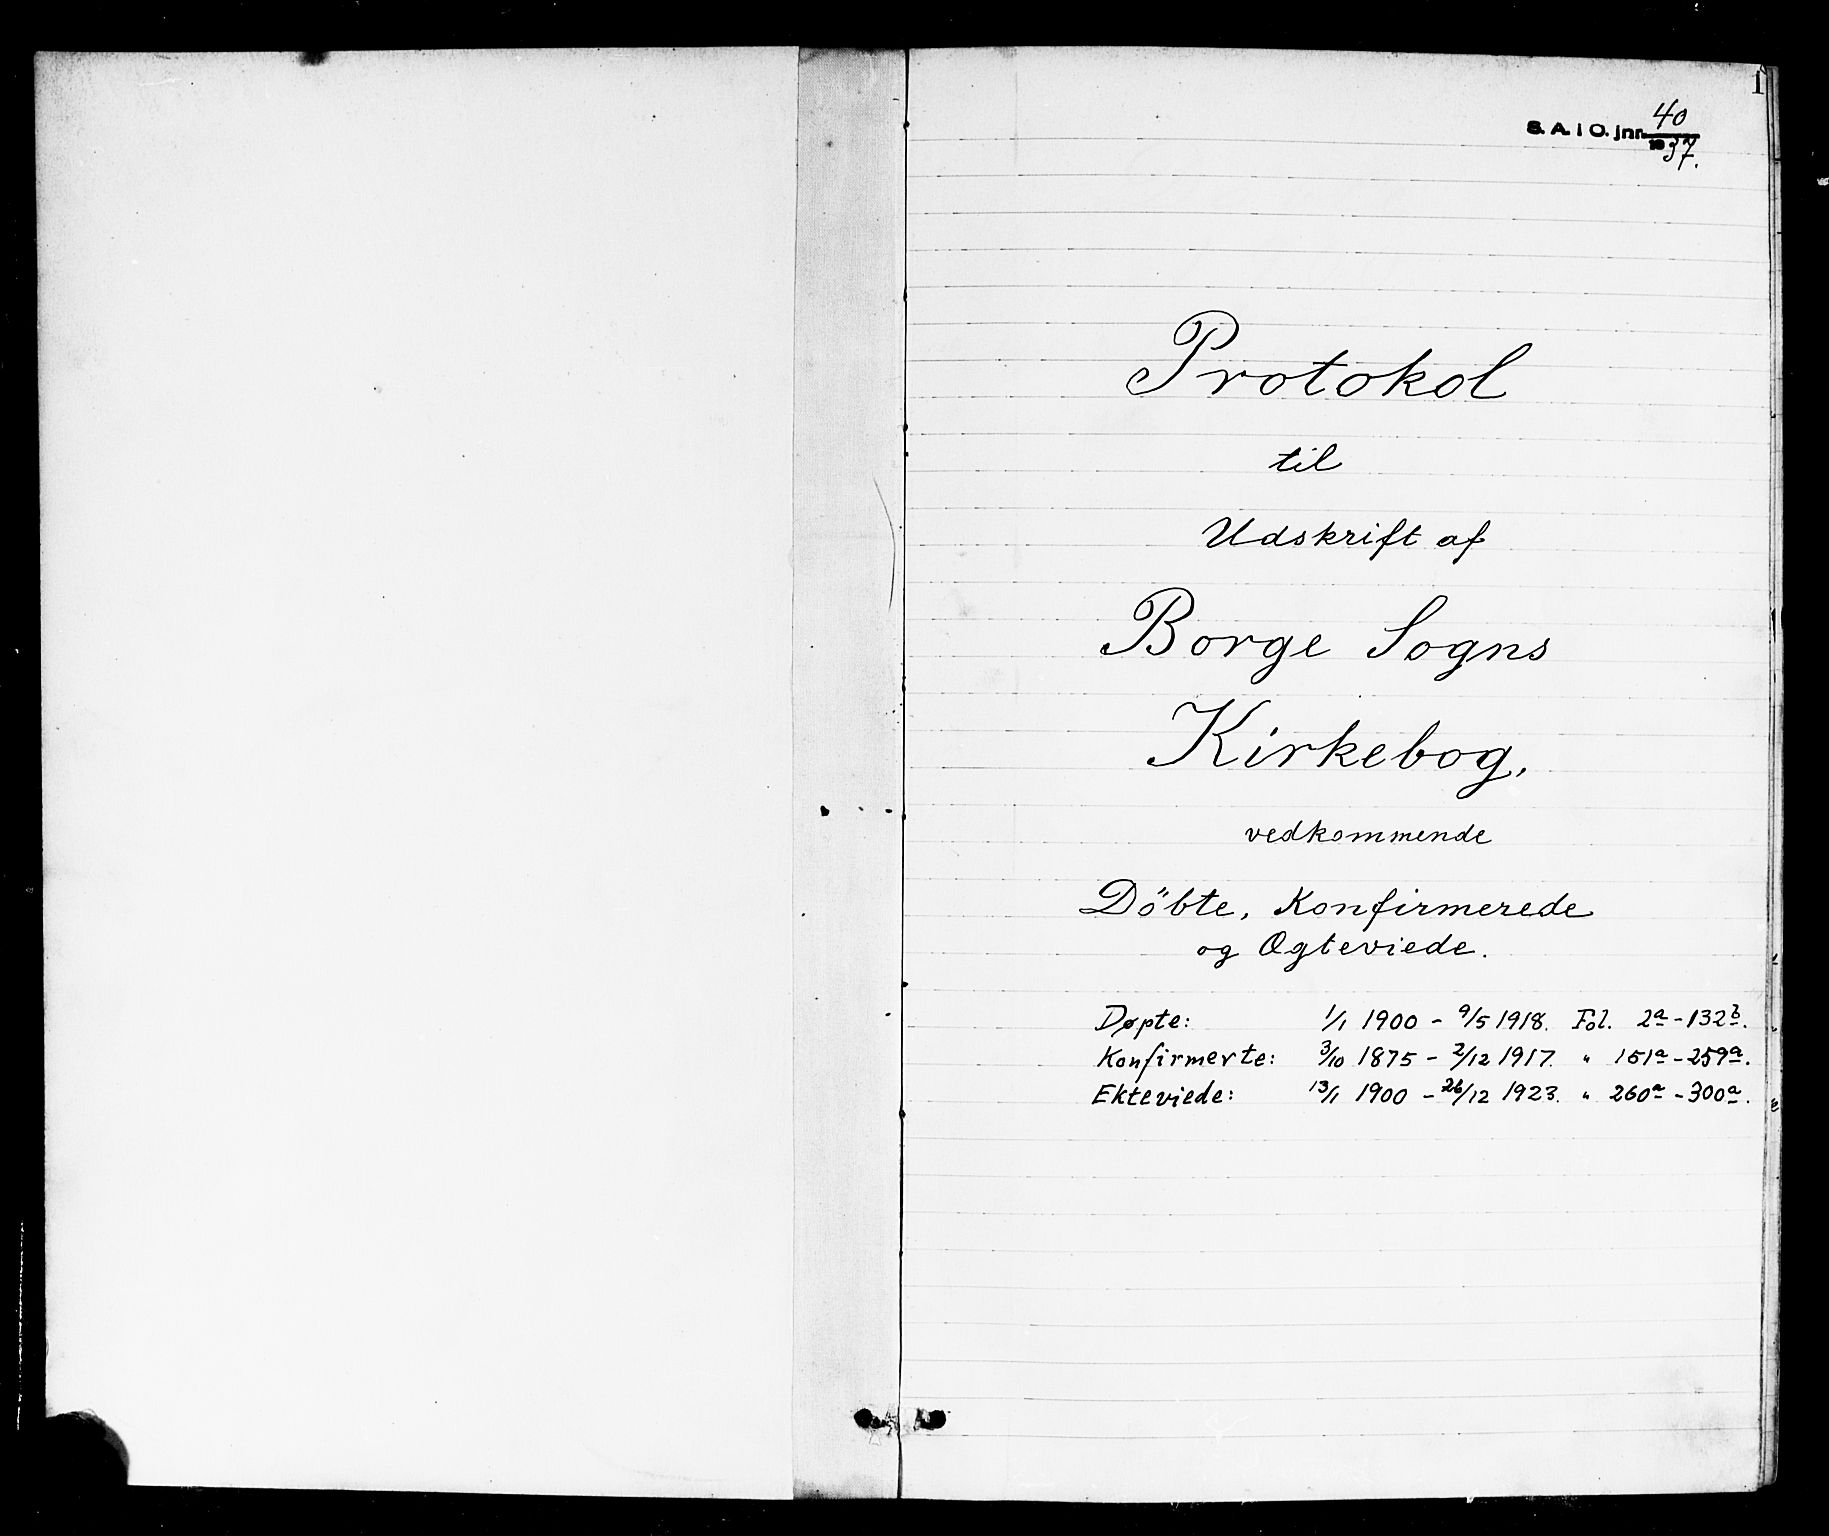 1
S. A. i O. jnr. 40/1937.
Protokol
til
Udskrift af
Borge Sogns
Kirkebog,
vedkommende
Döbte, Konfirmerede
og Ægteviede.
Døpte: 1/1 1900 - 9/5 1918. Fol. 2a - 132b.
Konfirmerte: 3/10 1875 - 2/12 1917. " 151a - 259a.
Ekteviede: 13/1 1900 - 26/12 1923. " 260a - 300a.